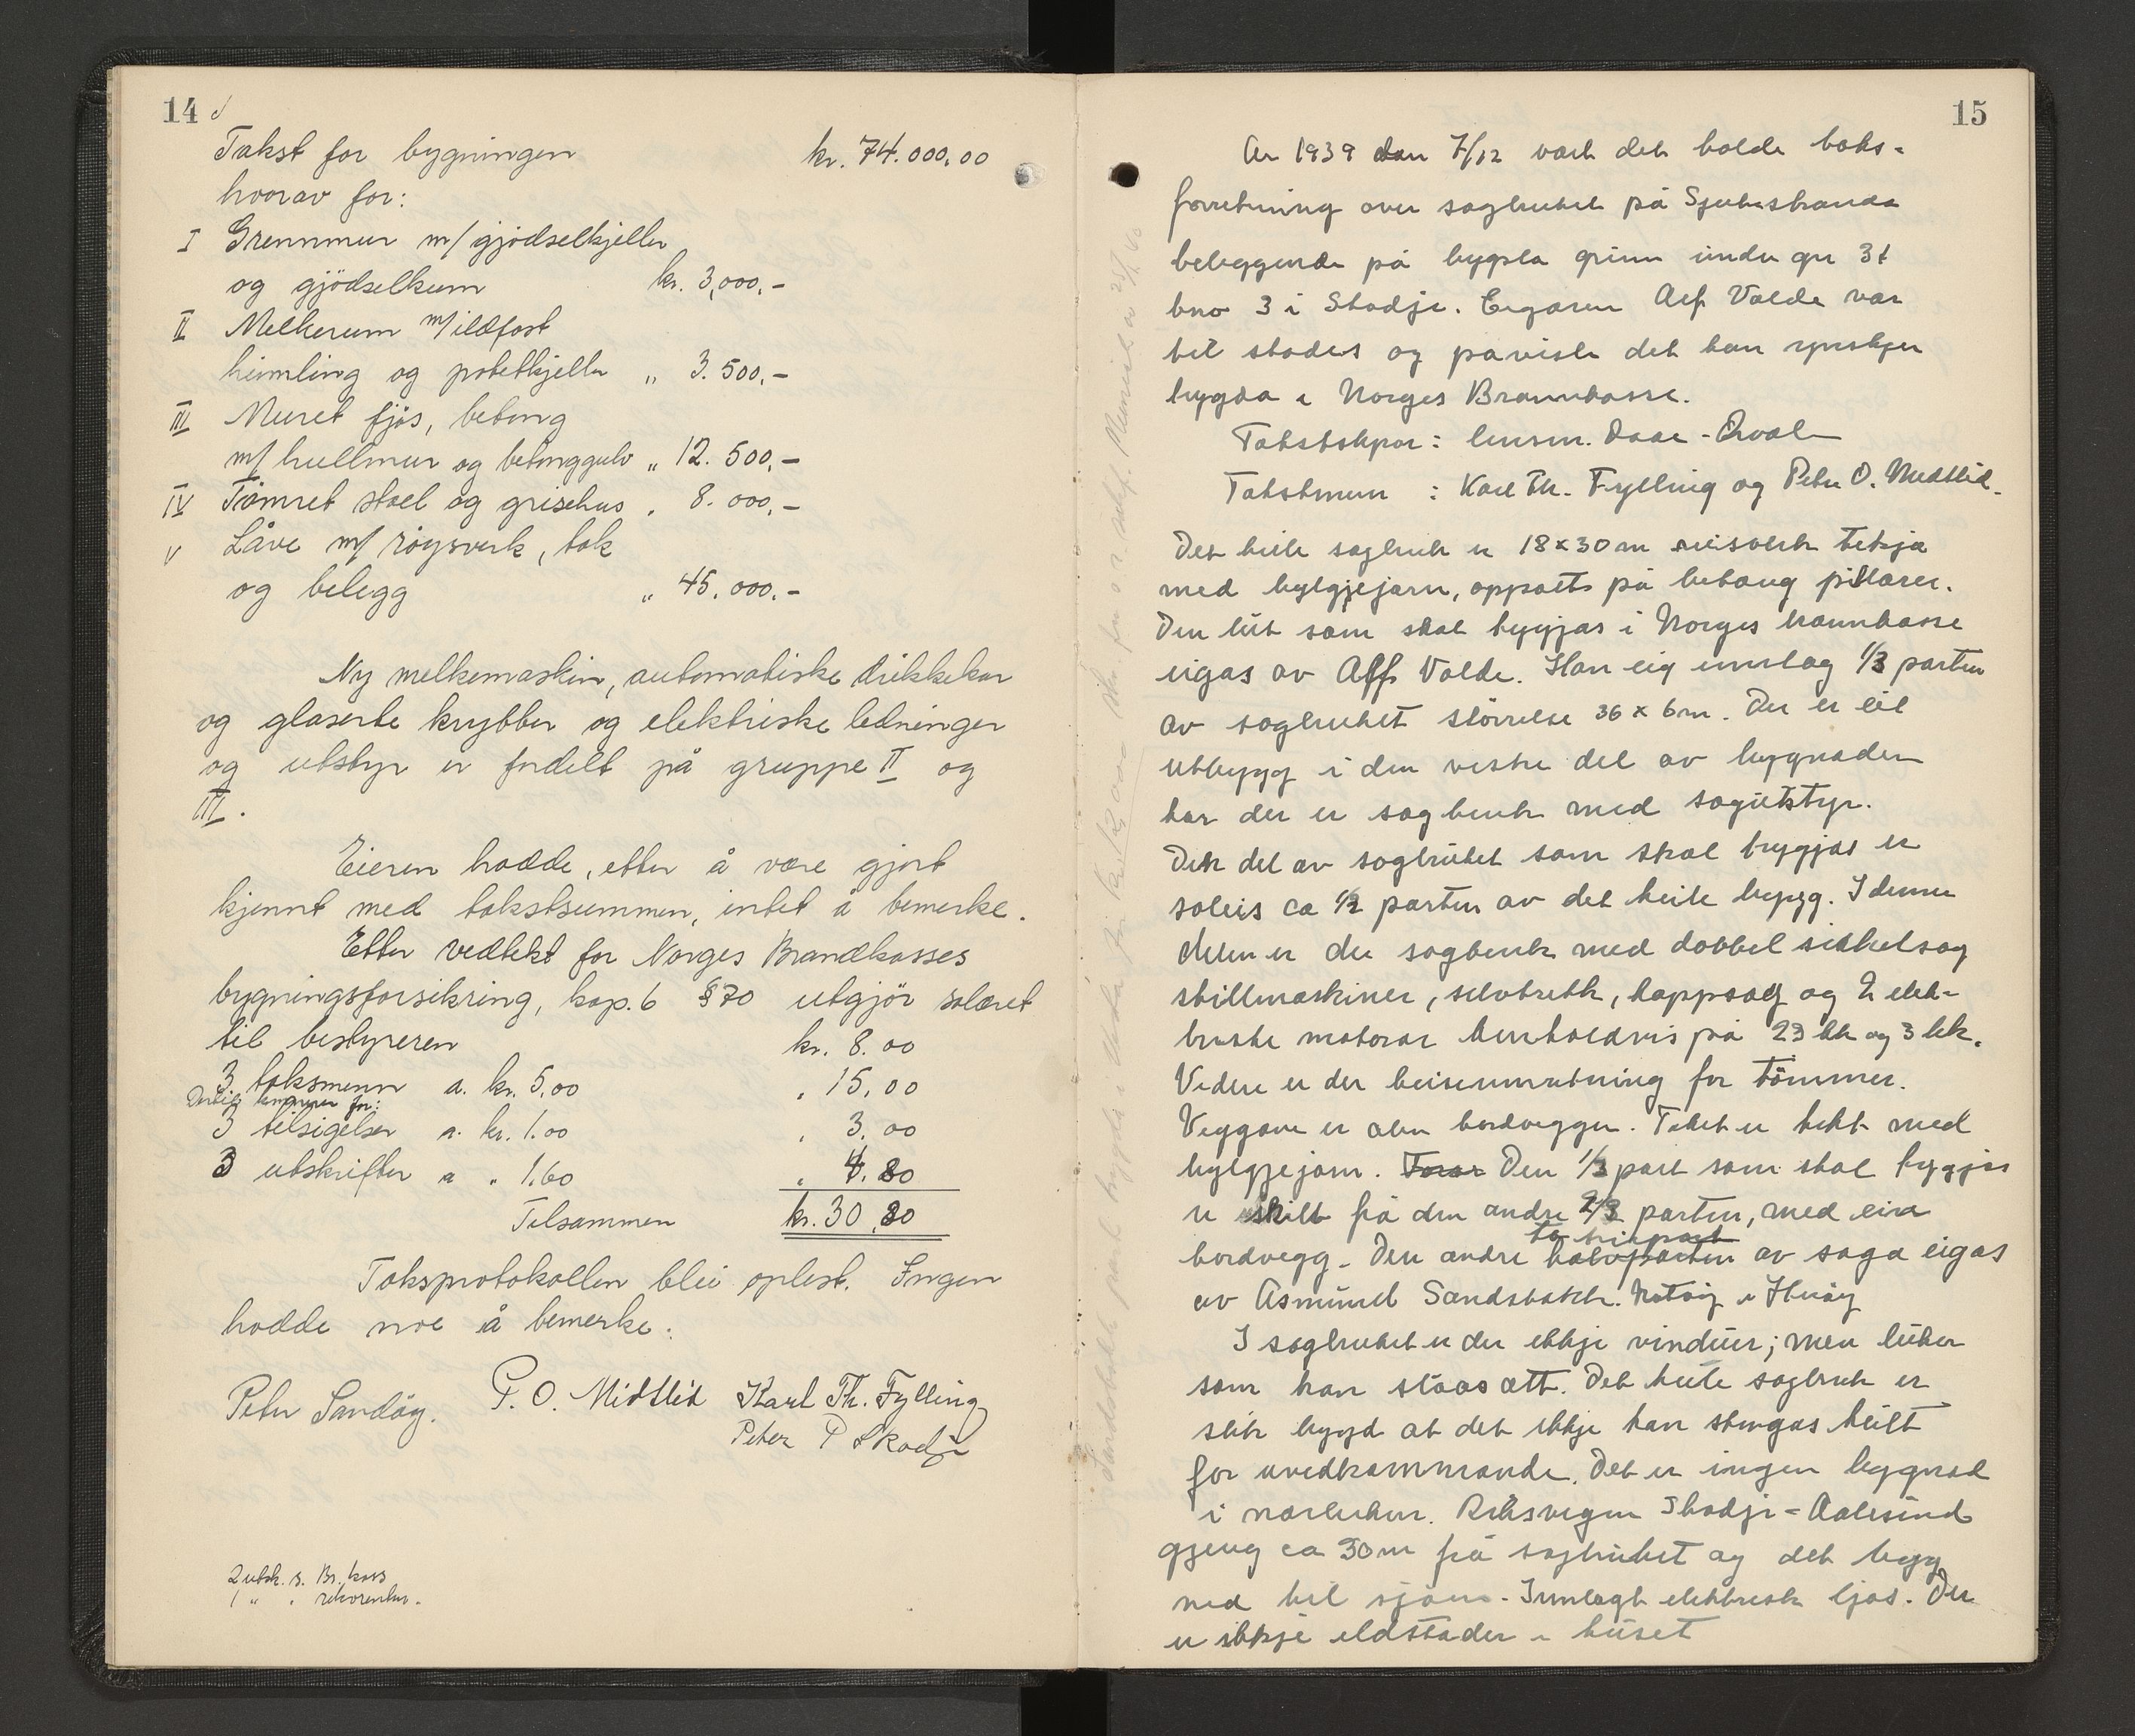 14
Takst for bygningen kr. 74.000,00
hvorav for:
I Grunnmur m/ gjödselkjeller
og gjödselkum kr. 3,000.-
II Melkerum m/ ildfast
himling og potetkjeller " 3.500,-
III Muret fjøs, betong
m/ hullmur og betonggulv " 12.500,-
IV Tömret stall og grisehus " 8.000,-
V Låve m/ röysverk, tak
og belegg " 45.000.-
Ny melkemaskin, automatiske drikkekar
og glaserte krybber og elektriske ledninger
og utstyr er fordelt på gruppe II og
III.
Eieren hadde, etter å være gjort
kjennt med takstsummen, intet å bemerke.
Etter vedtekt for Norges Brandkasses
bygningsforsikring, kap. 6 § 70 utgjör salæret
til bestyreren kr. 8.00
3 taksmenn a. kr. 5,00 " 15,00
for:
3 tilsigelser a. kr. 1.00 " 3,00
3 utskrifter a " 1.60 " 4.80
Tilsammen kr. 30.80
Taksprotokollen blei oplest. Ingen
hadde noe å bemerke.
Peter Sandöy. P. O. Midtlid Karl Th. Fylling
Peter P Skodje
2 utsk. s. Br. kass
1 " "
15
År 1939 den 7/12 vart det halde taks-
forretning over sagbruket på Sjutustranda
beleggende på bygsla grunn under gnr 31
bno 3 i Skodje. Eigaren Alf Valde var
til stades og påviste det han ynskjer
trygda i Norges Brannkasse.
Takstskjør: lensm. Daae-Qvale
Takstmenn : Karl Th. Fylling og Peter O. Midtlid.
Det heile sagbruk er 18 x 30 m reisverk tekja
med bylgjejarn, oppsatt på betong pillarer.
Den lut som skal trygjas i Norges brannkasse
eigas av Alf Valde. Han eig umlag 1/3 parten
av sagbruket störrelse 36 x 6 m. Der er eit
utbygg i den vestre del av bygnaden
har der er sagbenk med sagutstyr.
Den del av sagbruket som skal trygjas er
soleis ca 1/2 parten av det heile bygg. I denne
delen er der sagbenk med dobbel sirkelsag
stillmaskiner, selvtrekk, kappsag og 2 elek-
triske motorar henholdsvis på 23 hk og 3 hk.
Videre er der heiseinnretning for tömmer.
Veggane er alm bordvegger. Taket er tekt med
bylgjejarn. Den 1/3 part som skal trygjas
er skilt frå den andre 2/3 parten, med ein
to tripart
bordvegg. Den andre halvparten av saga eigas
av Asmund Sandsbakk.
I sagbruket er der ikkje vinduer; men luker
som kan slåas att. Det heile sagbruk er
slik bygd at det ikkje kan stengas heilt
for uvedkommande. Det er ingen bygnad
i nærleiken. Riksvegen Skodje - Aalesund
gjeng ca 30 m frå sagbruket og det bygg
ned til sjöen. Innlagt elektrisk ljos. Der
er ikkje eldstader i huset